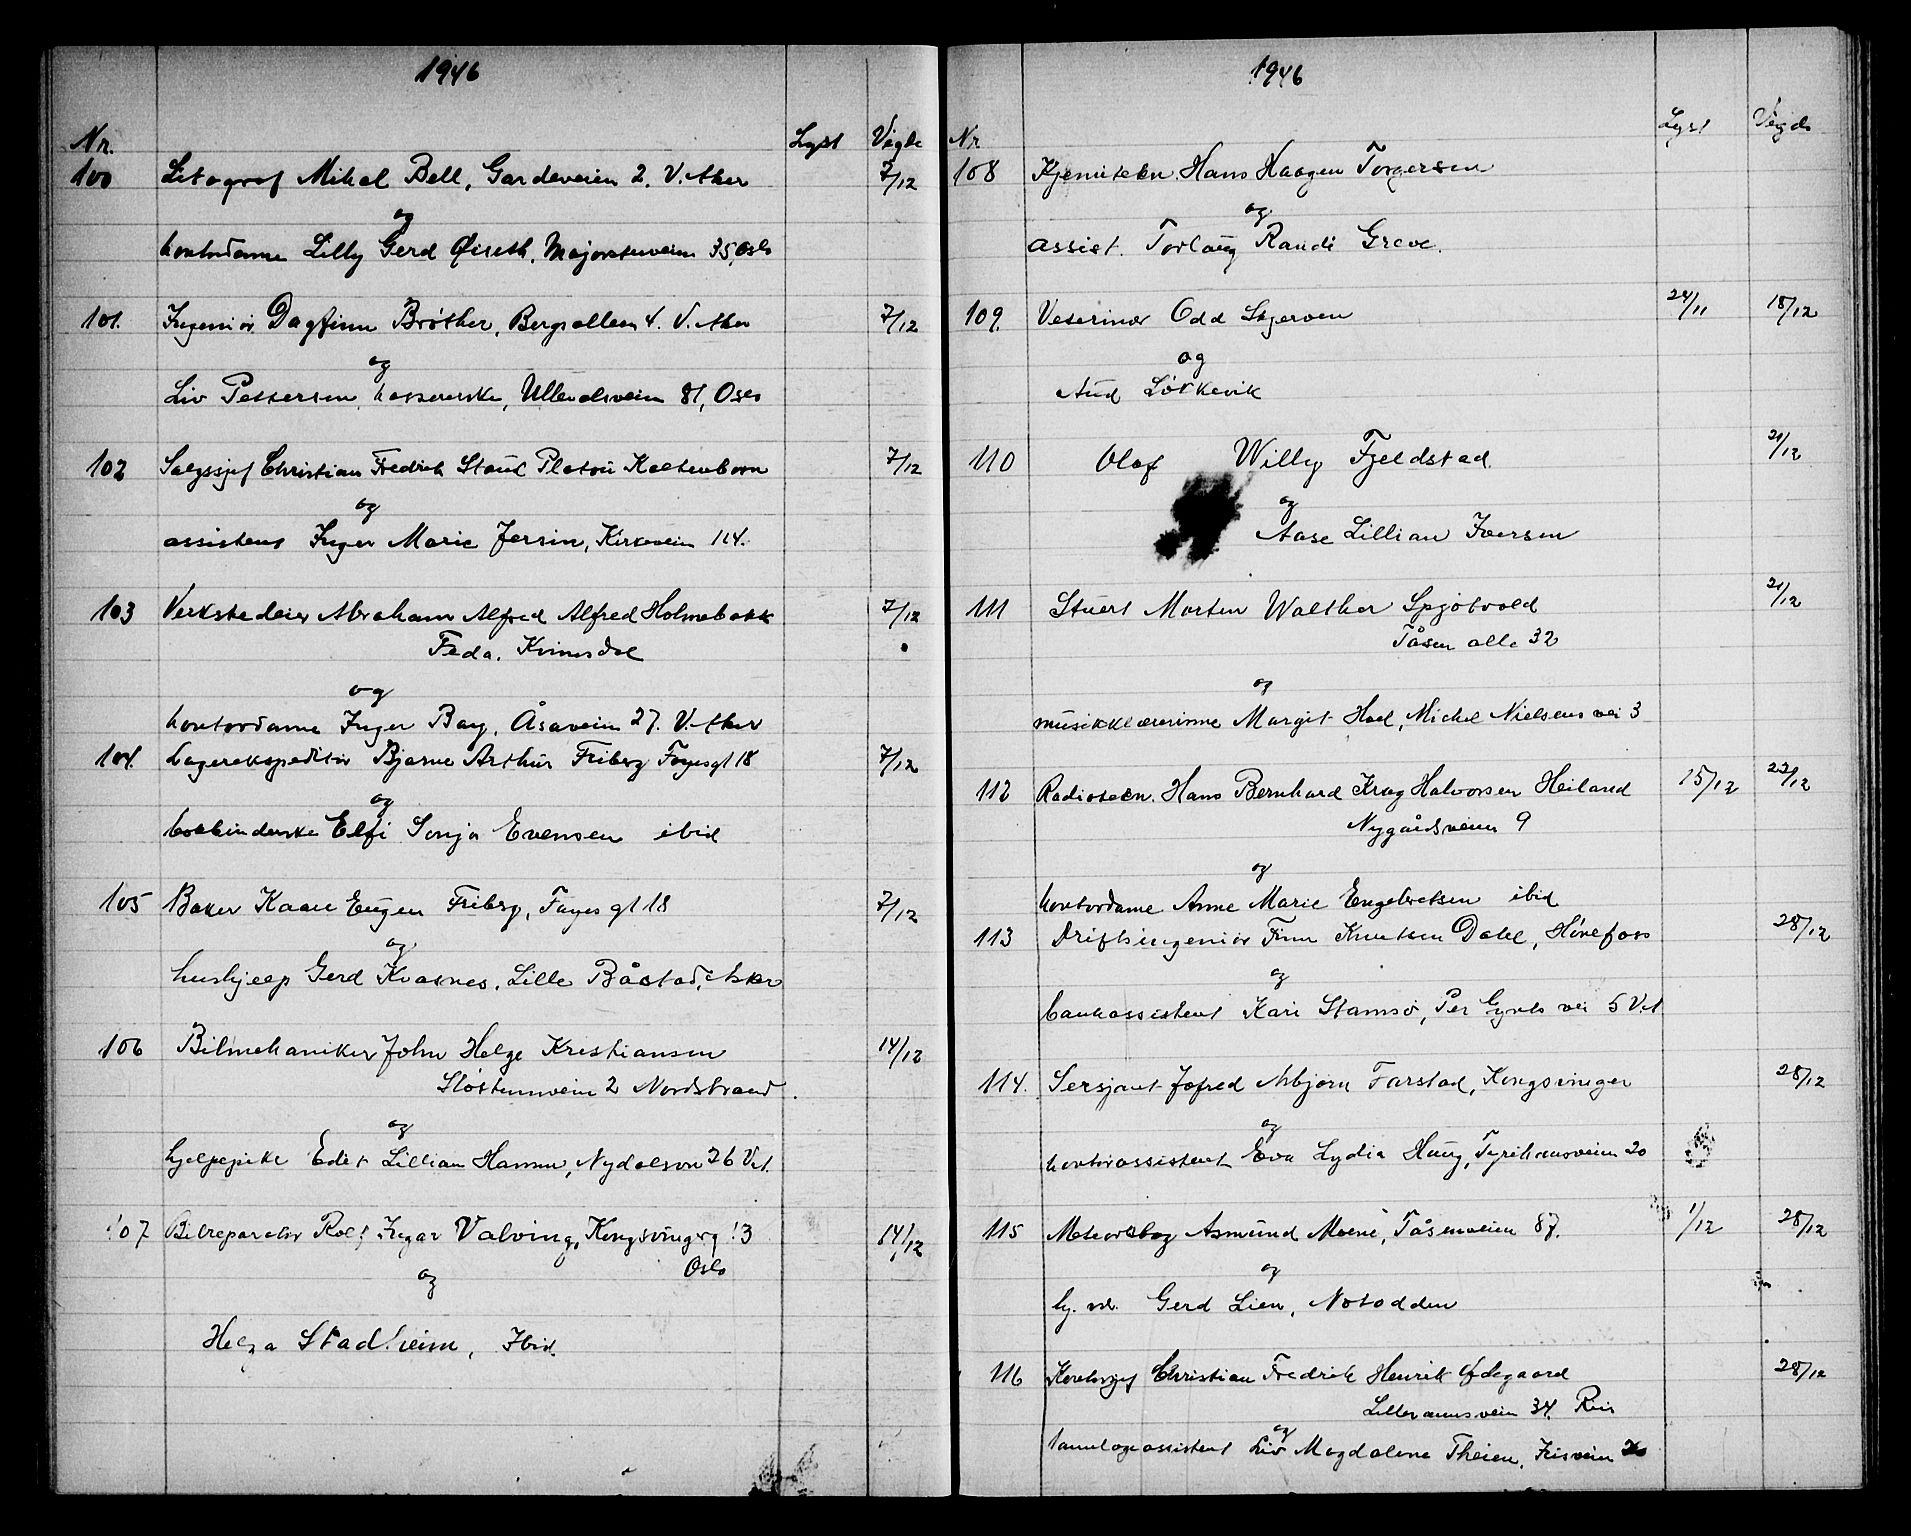 1946
Nr. Lyst Vigde
100 Litograf Mikal Bell, Gardeveien 2. V. Aker 7/12
og
kontordame Lilly Gerd Øiseth, Majorstuveien 35, Oslo
101. Ingeniør Dagfinn Brøther, Bergsalleen 4. V. Aker 7/12
og
Liv Pettersen, kassererske, Ullevålsveien 81, Oslo
102 Salgssjef Christian Fredrik Stoud Platou Kaltenborn 7/12
og
assistent Inger Marie Jersin, Kirkeveien 114.
103 Verkstedeier Abraham Alfred Alfred Holmebakk 7/12
Feda. Kvinesdal
og
kontordame Inger Bay, Åsaveien 27. V. Aker
104. Lagerekspeditør Bjarne Arthur Friberg Fayesgt 18 7/12
og
bokbinderske Elfi Sonja Evensen ibid
105 Baker Kaare Eugen Friberg, Fayes gt 18 7/12
og
hushjelp Gerd Kvasnes, Lille Båstad, Asker
106 Bilmekaniker John Helge Kristiansen 14/12
2 Nordstrand
og
hjelpepike Edit Lillian Hamm, Nydalsvn 26 V.A.
107 Bilreparatør Rolf Ingar Valving, Kongsvingerg 13 14/12
Oslo
og
Helga Stadheim, Ibid.
1946
Nr Lyst Vigde
108 Kjemitekn. Hans Haagen Torgersen
og
assist. Torlaug Randi Greve.
109. Veterinær Odd Skjerven 24/11 18/12
og
Aud Løtkevik
110 Olaf Willy Fjeldstad 21/12
og
Aase Lillian Iversen
111 Stuert Morten Walther Spjøtvold 21/12
Tåsen alle 32
og
musikklærerinne Margit Hoel, Michel Nielsens vei 3
112 Radiotekn. Hans Bernhard Krag Halvorsen Heiland 15/12 22/12
Nygårdsveien 9
og
kontordame Anne Marie Engebretsen ibid
113 Driftsingeniør Finn Knutsen Dahl, Hønefoss 28/12
og
bankassistent Kari Stamsø, Per Gynts vei 5 V.A
114. Sersjant Jofred Asbjørn Farstad, Kongsvinger 28/12
og
kontorassistent Eva Lydia Haug, Tyrihansveien 20
115 Meteorolog Asmund Moene, Tåsenveien 87. 1/12 28/12
og
Gerd Lien, Notodden
116 Kontorsjef Christian Fredrik Henrik Ødegaard 28/12
34.
og
tannlegeassistent Liv Magdalene Theien, Irisveien